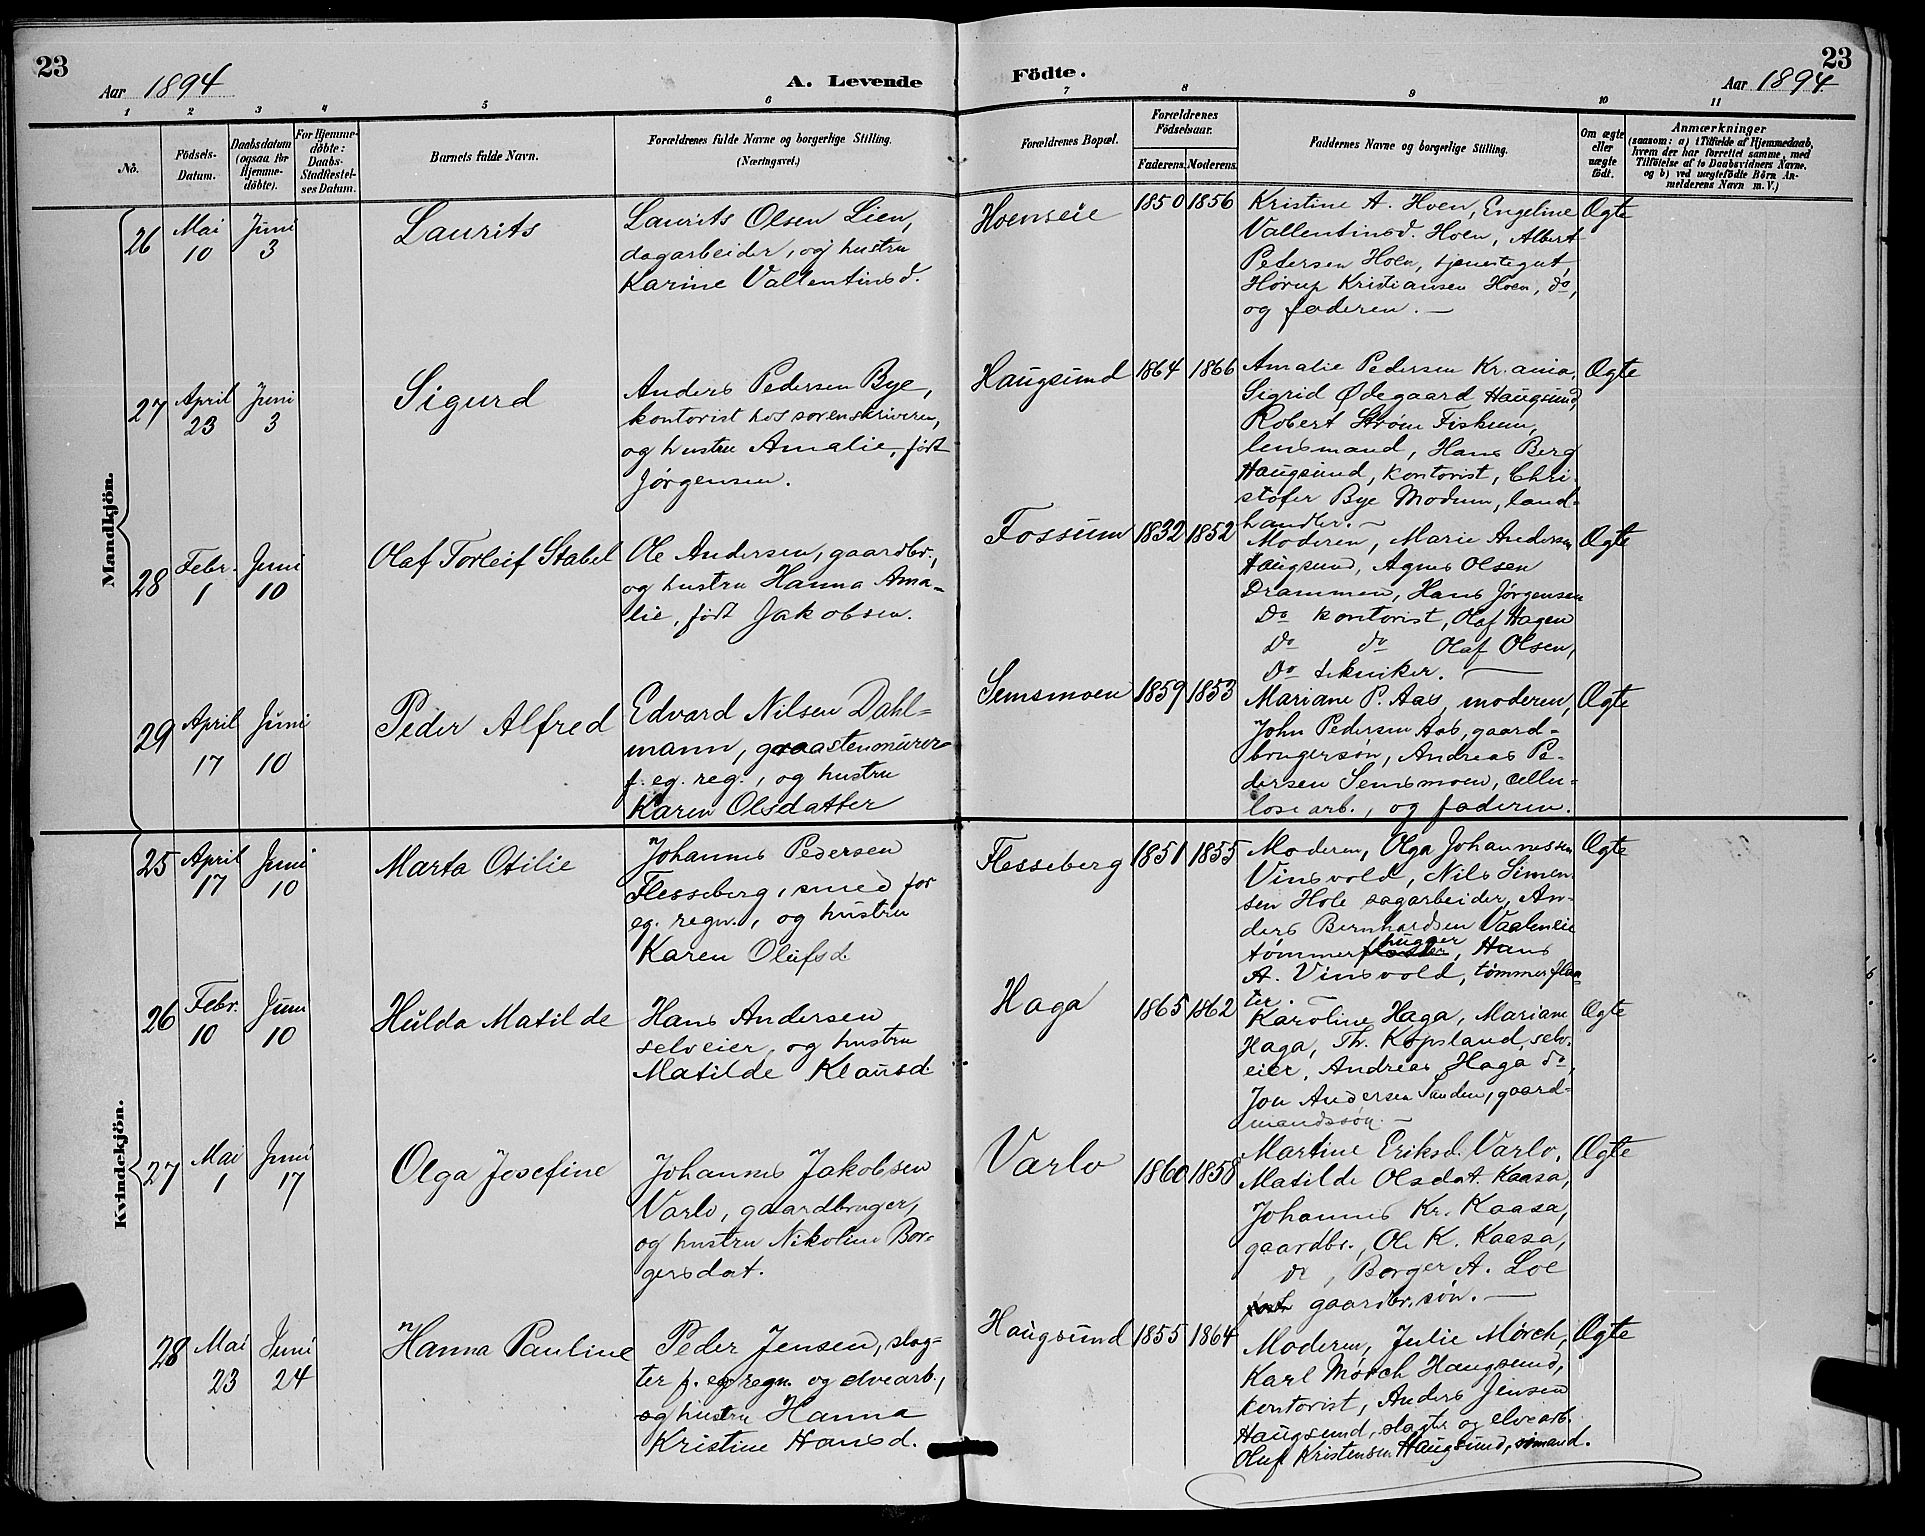 23
Aar 1894
A. Levende
Födte.
23
Aar 1894
1 2 3 4 5 6 7 8 9 10 11
No.
Födsels-
Datum.
Daabsdatum
(ogsaa for
Hjemme-
döbte).
For Hjemme-
döbte:
Daabs-
Stadfæstel-
ses Datum.
Barnets fulde Navn.
Forældrenes fulde Navne og borgerlige Stilling.
(Næringsvei.)
Forældrenes Bopæl.
Forældrenes
Födselsaar.
Faderens. Moderens.
Faddernes Navne og borgerlige Stilling.
Om ægte
eller
uægte
födt.
Anmærkninger
(saasom: a) i Tilfælde af Hjemmedaab,
hvem der har forrettet samme, med
Tilföielse af to Daabsvidners Navne,
og b) ved uægtefödte Börn An-
melderens Navn m. V.)
Mandkjön.
26
Mai
10
Juni
3
Laurits
Laurits Olsen Lien,
dagarbeider, og hustru
Karine Vallentinsd.
Hoenseie
1850 1856
Kristine A. Hoen, Engeline
Vallentinsd. Hoen, Albert
Petersen Hoen, tjenestegut,
Hørup Kristiansen Hoen, do,
og faderen. —
Ægte
27
April
23
Juni
3
Sigurd
Anders Pedersen Bye,
kontorist hos sorenskriveren,
og hustru Amalie, født
Jørgensen.
Haugsund
1864 1866
Amalie Pedersen Kr.ania,
Sigrid Ødegaard Haugsund,
Robert Strøm Fiskum,
lensmand, Hans Berg
Haugsund, kontorist, Chri-
stofer Bye Modum, land-
handler. —
Ægte
28
Febr.
1
Juni
10
Olaf Torleif Stabel
Ole Andersen, gaardbr.,
og hustru Hanna Ama-
lie, født Jakobsen.
Fossum
1832 1852
Moderen, Marie Andersen
Haugsund, Agnes Olsen
Drammen, Hans Jørgensen
Do kontorist, Olaf Hagen
Do do Olaf Olsen,
Do tekniker. —
Ægte
29
April
17
Juni
10
Peder Alfred
Edvard Nilsen Dahl-
mann, graastenmurer
f. eg. reg., og hustru
Karen Olsdatter
Semsmoen
1859 1853
Mariane P. Aas, moderen,
John Pedersen Aas, gaard-
brugersøn, Andreas Pe-
dersen Semsmoen, cellu-
losearb., og faderen.
Ægte
Kvindekjön.
25
April
17
Juni
10
Marta Otilie
Johannes Pedersen
Flesseberg, smed for
eg. regn., og hustru
Karen Olufsd.
Flesseberg
1851 1855
Moderen, Olga Johannessen
Vinsvold, Nils Simen-
sen Hole sagarbeider, An-
ders Bernhardsen Vaaleneie
tømmerhugger, Hans
A. Vinsvold, tømmerfløt-
ter. —
Ægte
26
Febr.
10
Juni
10
Hulda Matilde
Hans Andersen
selveier, og hustru
Matilde Klausd.
Haga
1865 1862
Karoline Haga, Mariane
Haga, Th. Kopsland, selv-
eier, Andreas Haga do,
Jon Andersen Sanden, gaard-
mandssøn. —
Ægte
27
Mai
1
Juni
17
Olga Josefine
Johannes Jakobsen
Varlo, gaardbruger,
og hustru Nikoline Bor-
gersdat.
Varlo
1860 1858
Martine Eriksd. Varlo,
Matilde Olsdat. Kaasa,
Johannes Kr. Kaasa,
gaardbr., Ole K. Kaasa,
do, Borger A. Loe
gaardbr.søn. —
Ægte
28
Mai
23
Juni
24
Hanna Pauline
Peder Jensen, slag-
ter f. eg regn. og elvearb.,
og hustru Hanna
Kristine Hansd.
Haugsund
1855 1864
Moderen, Julie Mørch,
Karl Mørch Haugsund,
kontorist, Anders Jensen
Haugsund, slagter og elvearb.
Oluf Kristensen Haugsund, sömand.
Ægte